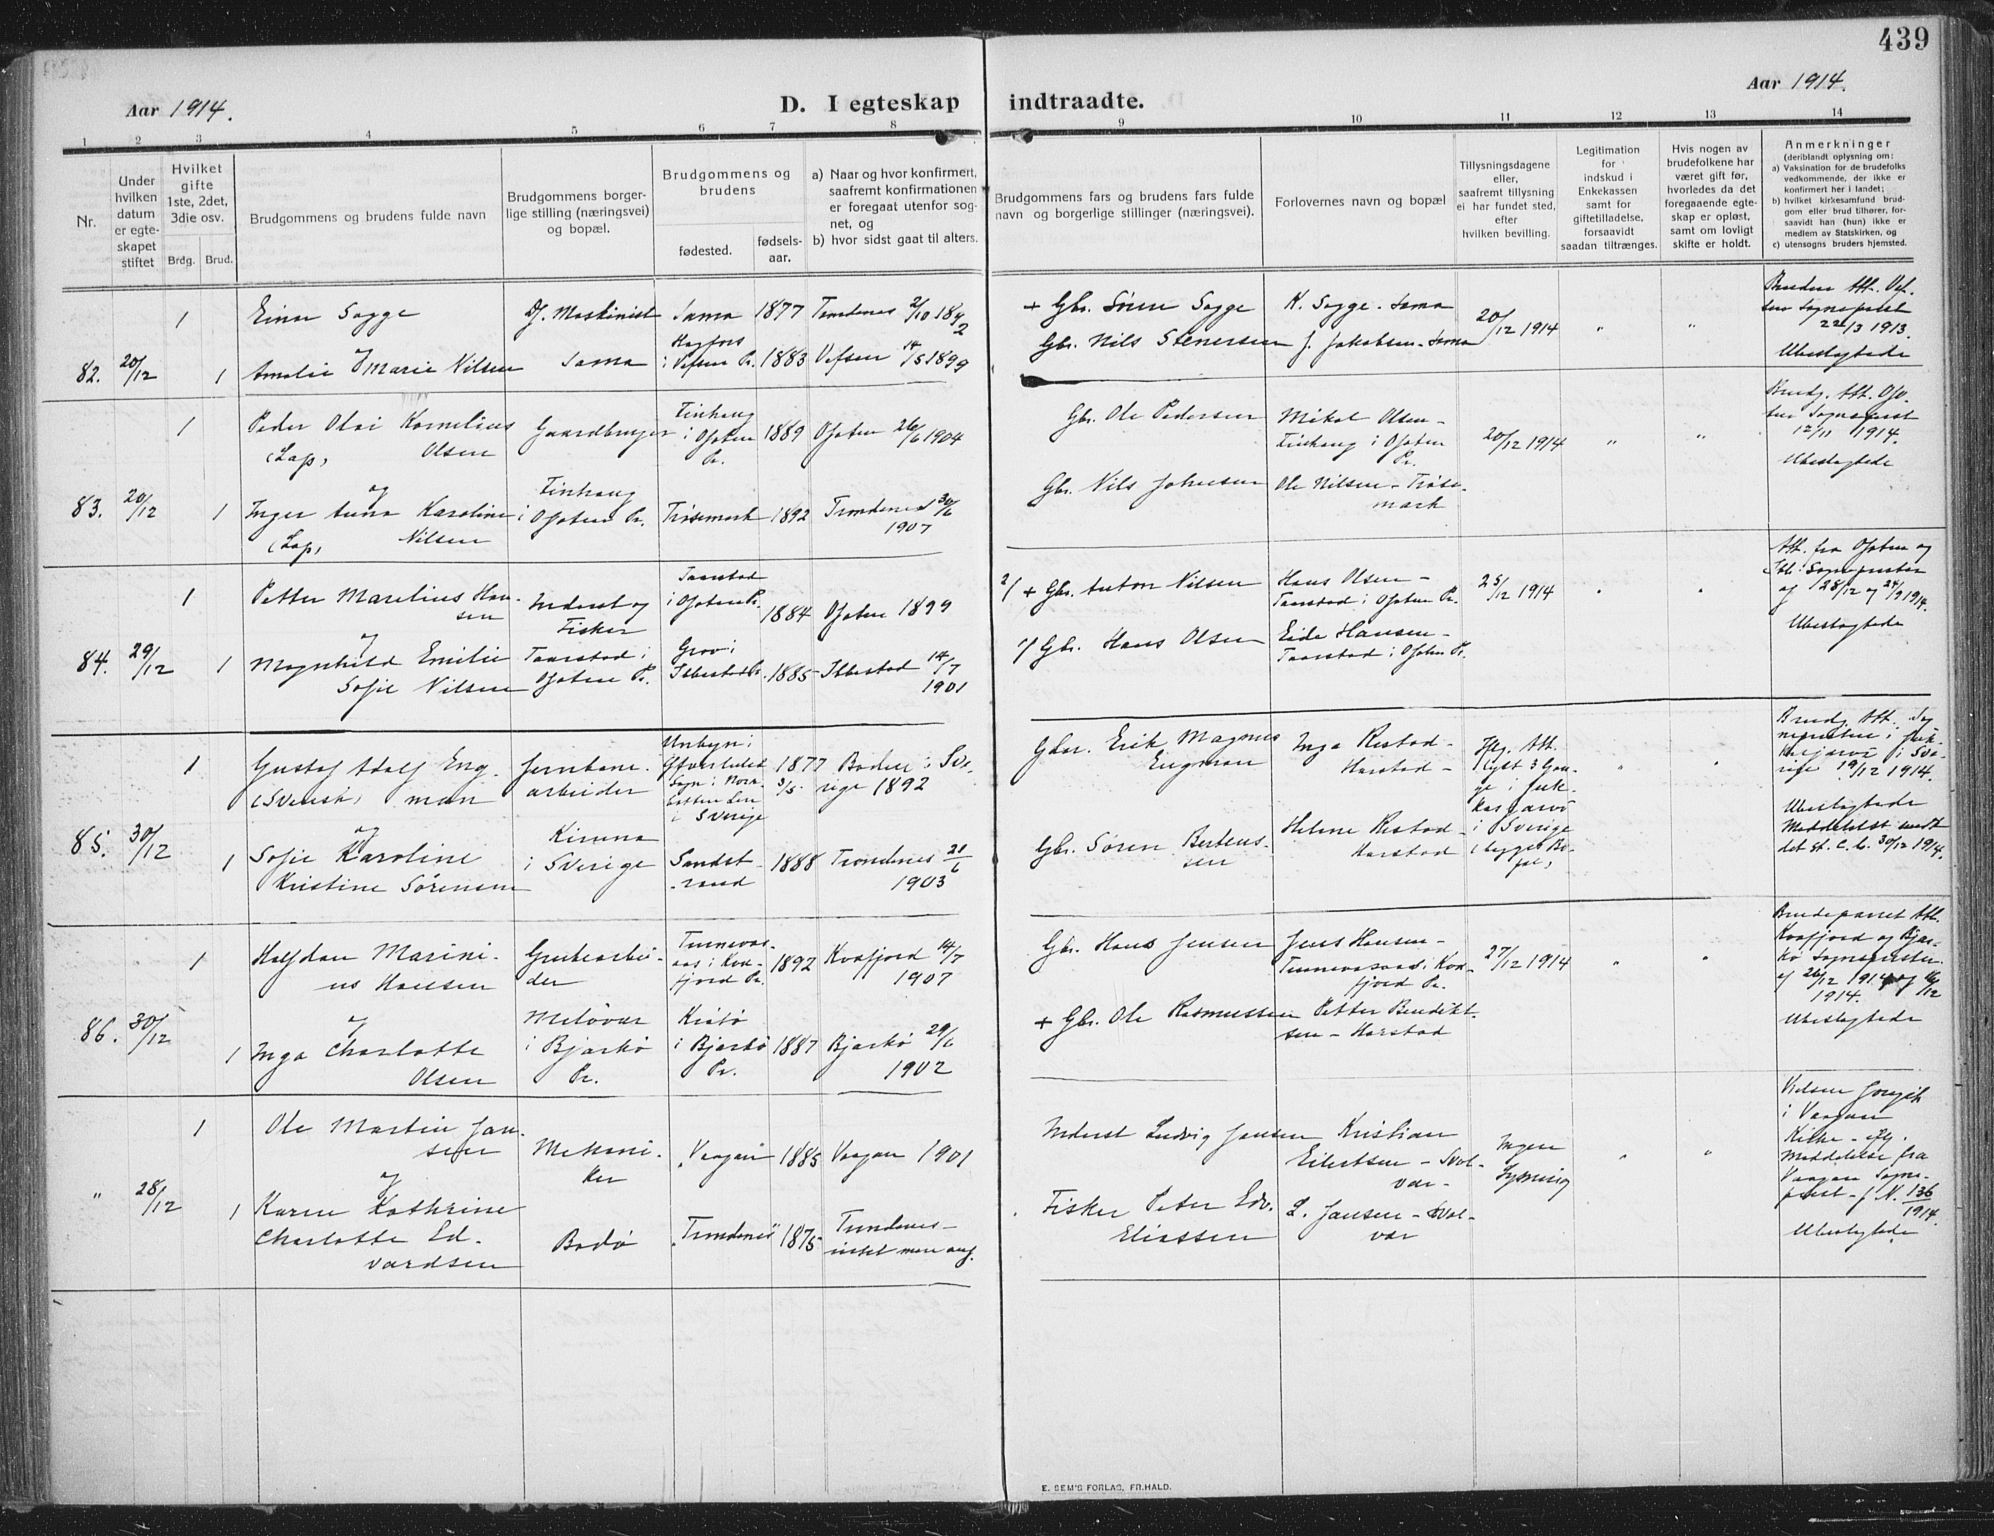 439
Aar 1914.
D. I egteskap indtraadte.
Aar 1914.
1 2 3 4 5 6 7 8 9 10 11 12 13 14
Nr.
Under hvilken datum er egteskapet stiftet
Hvilket gifte 1ste, 2det, 3die osv.
Brdg. Brud.
Brudgommens og brudens fulde navn
Brudgommens borgerlige stilling (næringsvei) og bopæl.
Brudgommens og brudens
fødested.
fødselsaar.
a) Naar og hvor konfirmert, saafremt konfirmationen er foregaat utenfor sognet, og
b) hvor sidst gaat til alters.
Brudgommens fars og brudens fars fulde navn og borgerlige stillinger (næringsvei).
Forlovernes navn og bopæl
Tillysningsdagene eller, saafremt tillysning ei har fundet sted, efter hvilken bevilling.
Legitimation for indskud i Enkekassen samt for giftetilladelse, forsaavidt saadan tiltrænges.
Hvis nogen av brudefolkene har været gift før, hvorledes da det foregaaende egteskap er opløst, samt om lovligt skifte er holdt.
Anmerkninger
(deriblandt oplysning om:
a) Vaksination for de brudefolks vedkommende, der ikke er konfirmert her i landet;
b) hvilket kirkesamfund brudgom eller brud tilhører, forsaavidt han (hun) ikke er medlem av Statskirken, og
c) utensogns bruders hjemsted.
82. 20/12 1 1
Einar Sagge
og
Amalie Marie Nilsen
Df. Maskinist
Sama
Sama 1877 Trondenes 2/10 1892
Hagfors i Vefsen Pr. 1883 Vefsen 14/5 1899
+ Gbr. Sören Sagge
Gbr. Nils Stenersen
K. Sagge - Sama
J. Jakobsen - Sama
20/12 1914 " "
Bruden Att. Vefsen Sogneprest 22/3 1913.
Ubeslægtede
83. 20/12 1 1
Peder Olai Kornelius Olsen
(Lap)
og
Inger Anna Karoline Nilsen
(Lap)
Gaardbruger
i Ofoten Pr.
i Ofoten Pr. 1889 Ofoten 26/6 1904
Trøsemark 1892 Trondenes 30/6 1907
Gbr. Ole Pedersen
Gbr. Nils Johnsen
Mikal Olsen - i Ofoten Pr.
Ole Nilsen - Trøsemark
20/12 1914 " "
Brudg. Att. Ofoten Sogneprest 12/11 1914.
Ubeslægtede
84. 29/12 1 1
Petter Marelius Hansen
og
Magnhild Emilie Sofie Nilsen
Inderst og Fisker
Taarstad i Ofoten Pr.
Taarstad i Ofoten Pr. 1884 Ofoten 1899
Grov i Ibbestad Pr. 1885 Ibbestad 14/7 1901
2/ + Gbr. Anton Nilsen
1/ Gbr. Hans Olsen
Hans Olsen - Taarstad i Ofoten Pr.
Eide Hansen - Taarstad i Ofoten Pr.
25/12 1914 " "
Att. fra Ofoten og Ibb. Sogneprester af 28/12 og 24/9 1914.
Ubeslægtede
85. 30/12 1 1
Gustaf Adolf Engman
(Svensk)
og
Sofie Karoline Kristine Sørensen
Jernbanearbeider
Kiruna i Sverige
Unbyn i Öfverluleå Sogn i Norrbottens Len i Sverige
1877 3/5 Boden i Sverige 1892
Sandstrand 1888 Trondenes 21/6 1903
Gbr. Erik Magnus Engman
Gbr. Søren Bertensen
Inga Restad - Harstad -
Helene Restad - Harstad
Iflg. Att. lyst 3 Gange i Jukkasjarvi i Sverige
Brudg. Att. i Jukkasjarvi i Sverige 19/12 1914.
Ubeslægtede
Meddelelse sendt det st. C. b. 30/12 1914.
86. 30/12 1 1
Halfdan Marinius Hansen
og
Inga Charlotte Olsen
Grubearbeider
Meløvar i Bjarkø Pr.
i Kvæfjord Pr. 1892 Kvæfjord 14/7 1907
Krøtø i Bjarkø Pr. 1887 Bjarkø 29/6 1902
Gbr. Hans Jensen
+ Gbr. Ole Rasmussen
Jens Hansen - i Kvæfjord Pr.
Petter Bendiktsen - Harstad
27/12 1914 " "
Brudeparret Att. Kvæfjord og Bjarkø Sogneprester af 26/12 1914 og 16/12 1914.
Ubeslægtede
" 28/12 1 1
Ole Martin Jansen
og
Karen Kathrine Charlotte Edvardsen
Mekaniker
Bodø
Vaagan 1885 Vaagan 1901
Trondenes 1875 Trondenes - intet mere anf.
Inderst Ludvig Jansen
Fisker Peter Edv. Eliassen
Kristian Eilertsen - Svolvær -
L. Jansen - Svolvær
Ingen Lysning " "
Vielsen foregik i Vaagan Kirke - Iflg. Meddelelse fra Vaagan Sogneprest - J. N. 136/1914.
Ubeslægtede
E. SEM'S FORLAG, FR.HALD.